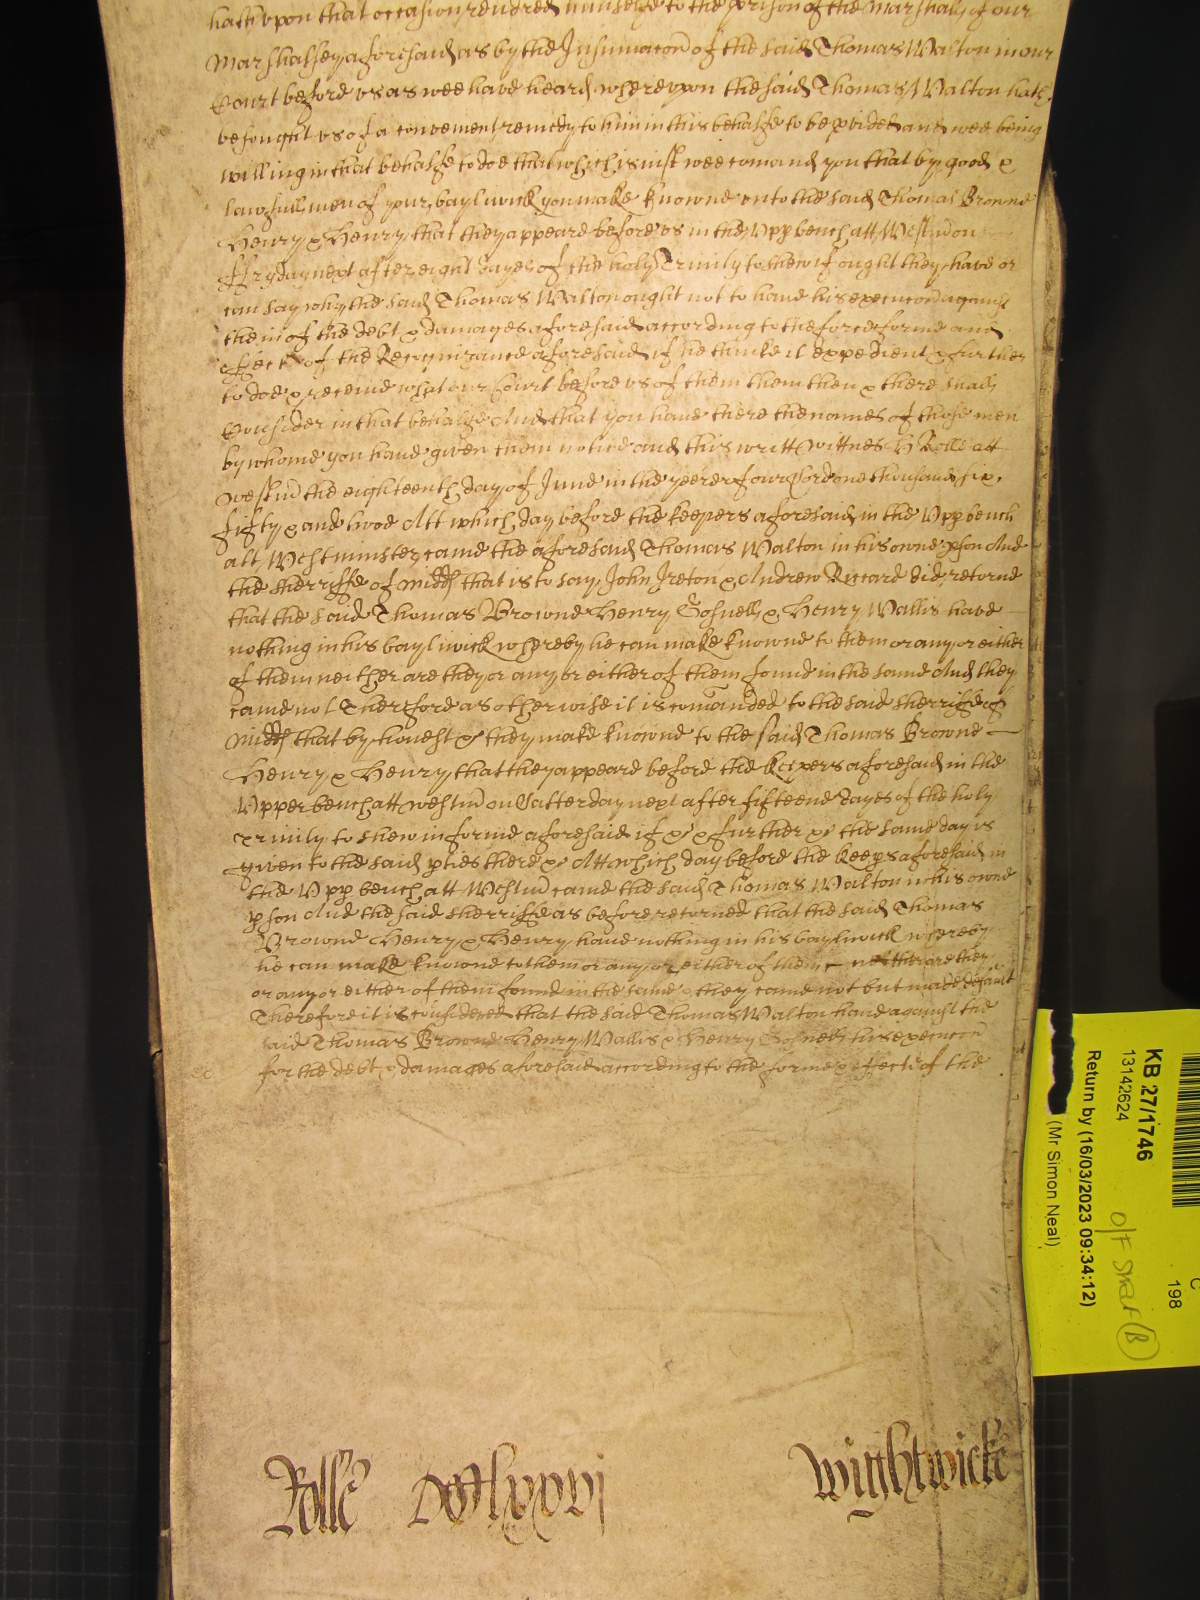 hath vpon that occasion rendred himselfe to the prison of the Marshall of our
Marshalsey aforesaid as by the Insinuacon of the said Thomas Walton in our
Court before vs as wee have heard wherevpon the said Thomas Walton hath
besought vs of a convenient remedy to him in this behalfe to be pvided and wee being
willing in that behalfe to doe that which is iust wee comand you that by good &
lawfull men of your bayliwick you make knowne vnto the said Thomas Browne
Henry & Henry that they appeare before vs in the Vpp bench att Westm on
ffryday next after eight dayes of the holy Trinity to shew if ought they have or
can say why the said Thomas Walton ought not to have his execucon against
them of the debt & damages aforesaid according to the force forme and
effect of the Recognizance aforesaid if he thinke it expedient & further
to doe & receive what our Court before vs of them them then & there shall
Consider in that behalfe And that you have there the names of those men
by whome you have given them notice and this writt wittnes H Rolle att
Westm the eighteenth day of June in the yeere of our Lord one thousand six
fifty & and twoe Att which day before the keepers aforesaid in the Vpp bench
att Westminster came the aforesaid Thomas Walton in his owne pson And
the sherriffe of Midd that is to say John Ireton & Andrew Riccard did retorne
that the said Thomas Browne Henry Gosnell & Henry Wallis have
nothing in his bayliwick whereby he can make knowne to them or any or either
of them neither are they or any or either of them found in the same And they
came not Therefore as otherwise it is comanded to the said sherriffe of
Midd that by honest &c they make knowne to the said Thomas Browne
Henry & Henry that they appeare before the keepers aforesaid in the
Vpper bench att Westm on Satterday next after fifteene dayes of the holy
Trinity to shew in forme aforesaid if &c & further &c the same day is
given to the said pties there &c Att which day before the keeps aforesaid in
the Vpp bench att Westm came the said Thomas Walton in his owne
pson And the said sherriffe as before returned that the said Thomas
Browne Henry & Henry have nothing in his bayliwick whereby
he can make knowne to them or any or either of them neither are they
or any or either of them found in the same & they came not but made default
Therefore it is considered that the said Thomas Walton have against the
said Thomas Browne Henry Wallis & Henry Gosnell his execucon
for the debt & damages aforesaid according to the forme & effect of the
Rolle
Wightwicke
KB 27/1746
13142624
Return by (16/03/2023 09:34:12)
(Mr Simon Neal)
C
198
O/F